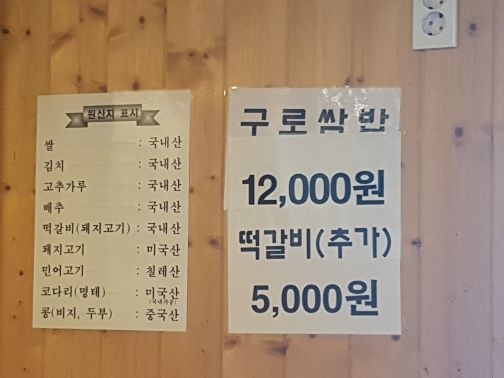 원산지 표시
쌀 : 국내산
김치 : 국내산
고추가루 : 국내산
배추 : 국내산
떡갈비(돼지고기) : 국내산
돼지고기 : 미국산
민어고기 : 칠레산
코다리(명태) : 미국산
(국내가공)
콩(비지, 두부) : 중국산
구로쌈밥
12,000원
떡갈비(추가)
5,000원